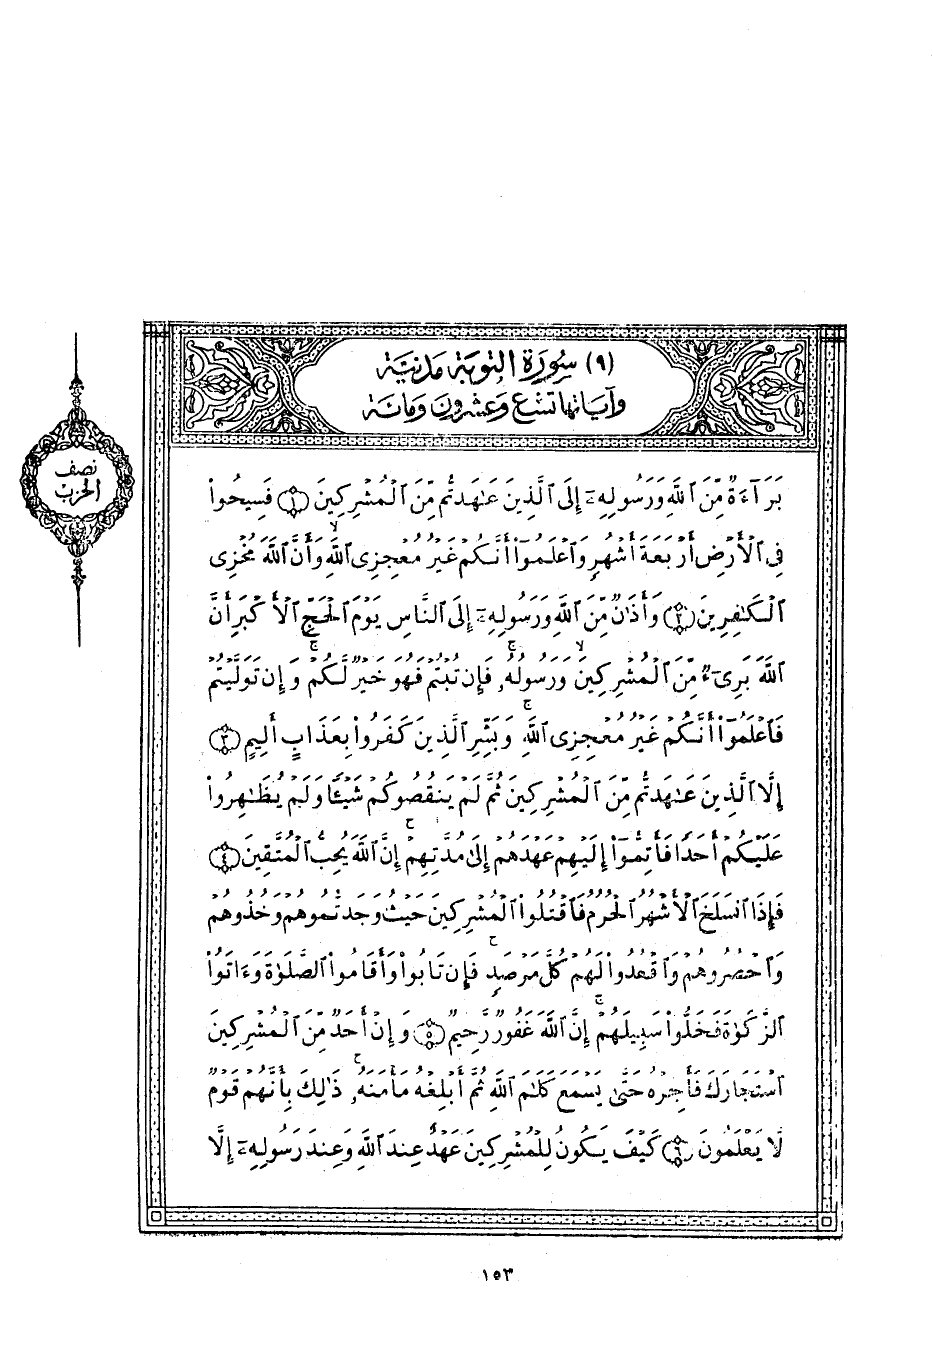 (٩) سُورَة التوبَة مَدنيَّة
وَآيَاتهَا تِسْع وَعشرونَ وَمائة
نصف
الحزب
بَرَآءَةٌ مِّنَ ٱللَّهِ وَرَسُولِهِۦٓ إِلَى ٱلَّذِينَ عَٰهَدتُّم مِّنَ ٱلْمُشْرِكِينَ ﴿١﴾ فَسِيحُوا۟
فِى ٱلْأَرْضِ أَرْبَعَةَ أَشْهُرٍ وَٱعْلَمُوٓا۟ أَنَّكُمْ غَيْرُ مُعْجِزِى ٱللَّهِ ۙ وَأَنَّ ٱللَّهَ مُخْزِى
ٱلْكَٰفِرِينَ ﴿٢﴾ وَأَذَٰنٌ مِّنَ ٱللَّهِ وَرَسُولِهِۦٓ إِلَى ٱلنَّاسِ يَوْمَ ٱلْحَجِّ ٱلْأَكْبَرِ أَنَّ
ٱللَّهَ بَرِىٓءٌ مِّنَ ٱلْمُشْرِكِينَ ۙ وَرَسُولُهُۥ ۚ فَإِن تُبْتُمْ فَهُوَ خَيْرٌ لَّكُمْ ۖ وَإِن تَوَلَّيْتُمْ
فَٱعْلَمُوٓا۟ أَنَّكُمْ غَيْرُ مُعْجِزِى ٱللَّهِ ۗ وَبَشِّرِ ٱلَّذِينَ كَفَرُوا۟ بِعَذَابٍ أَلِيمٍ ﴿٣﴾
إِلَّا ٱلَّذِينَ عَٰهَدتُّم مِّنَ ٱلْمُشْرِكِينَ ثُمَّ لَمْ يَنقُصُوكُمْ شَيْـًٔا وَلَمْ يُظَٰهِرُوا۟
عَلَيْكُمْ أَحَدًا فَأَتِمُّوٓا۟ إِلَيْهِمْ عَهْدَهُمْ إِلَىٰ مُدَّتِهِمْ ۚ إِنَّ ٱللَّهَ يُحِبُّ ٱلْمُتَّقِينَ ﴿٤﴾
فَإِذَا ٱنسَلَخَ ٱلْأَشْهُرُ ٱلْحُرُمُ فَٱقْتُلُوا۟ ٱلْمُشْرِكِينَ حَيْثُ وَجَدتُّمُوهُمْ وَخُذُوهُمْ
وَٱحْصُرُوهُمْ وَٱقْعُدُوا۟ لَهُمْ كُلَّ مَرْصَدٍ ۚ فَإِن تَابُوا۟ وَأَقَامُوا۟ ٱلصَّلَوٰةَ وَءَاتَوُا۟
ٱلزَّكَوٰةَ فَخَلُّوا۟ سَبِيلَهُمْ ۚ إِنَّ ٱللَّهَ غَفُورٌ رَّحِيمٌ ﴿٥﴾ وَإِنْ أَحَدٌ مِّنَ ٱلْمُشْرِكِينَ
ٱسْتَجَارَكَ فَأَجِرْهُ حَتَّىٰ يَسْمَعَ كَلَٰمَ ٱللَّهِ ثُمَّ أَبْلِغْهُ مَأْمَنَهُۥ ۚ ذَٰلِكَ بِأَنَّهُمْ قَوْمٌ
لَّا يَعْلَمُونَ ﴿٦﴾ كَيْفَ يَكُونُ لِلْمُشْرِكِينَ عَهْدٌ عِندَ ٱللَّهِ وَعِندَ رَسُولِهِۦٓ إِلَّا
١٥٣